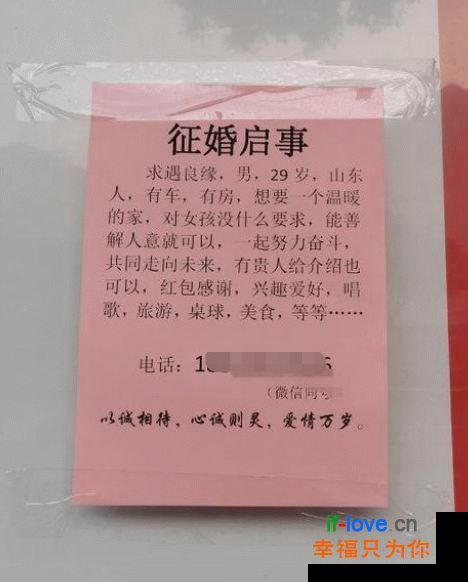 征婚启事
求遇良缘，男，29岁，山东
人，有车，有房，想要一个温暖
的家，对女孩没什么要求，能善
解人意就可以，一起努力奋斗，
共同走向未来，有贵人给介绍也
可以，红包感谢，兴趣爱好，唱
歌，旅游，桌球，美食，等等……
电话：
（微信同
以诚相待，心诚则灵，爱情万岁。
if-love.cn
幸福只为你